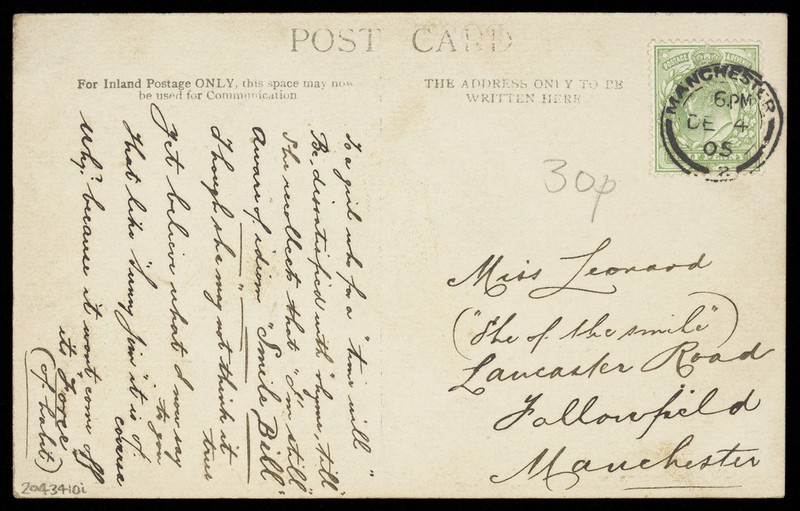 POST CARD
For Inland Postage ONLY, this space may now
be used for Communication.
THE ADDRESS ONLY TO BE
WRITTEN HERE
MANCHESTER
6.PM
DE 4
05
2
30p
To a girl who for a "time will"
Be dissatisfied with "rhyme, till"
She recollects that "I'm still"
Aware of idiom "Smile Bill".
Though she may not think it true
Yet believe what I now say to you
That like "Sunny Jim" it is of course
Why? because it won't come off
its Force
(of habit)
Miss Leonard
("She of the smile")
Lancaster Road
Fallowfield
Manchester
2043410i